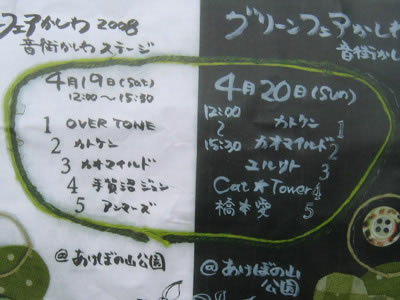 フェアかしわ 2008
音街かしわステージ
4月19日(sat)
12:00〜15:30
1 OVER TONE
2 カトケン
3 カオマイルド
4 手賀沼ジュン
5 アンマーズ
@あけぼの山公園
グリーンフェアかしわ
音街かし
4月20日(sun)
12:00
〜
15:30
カトケン 1
カオマイルド 2
ユルリト 3
Cat★Tower 4
橋★愛 5
@あけぼの山
公園